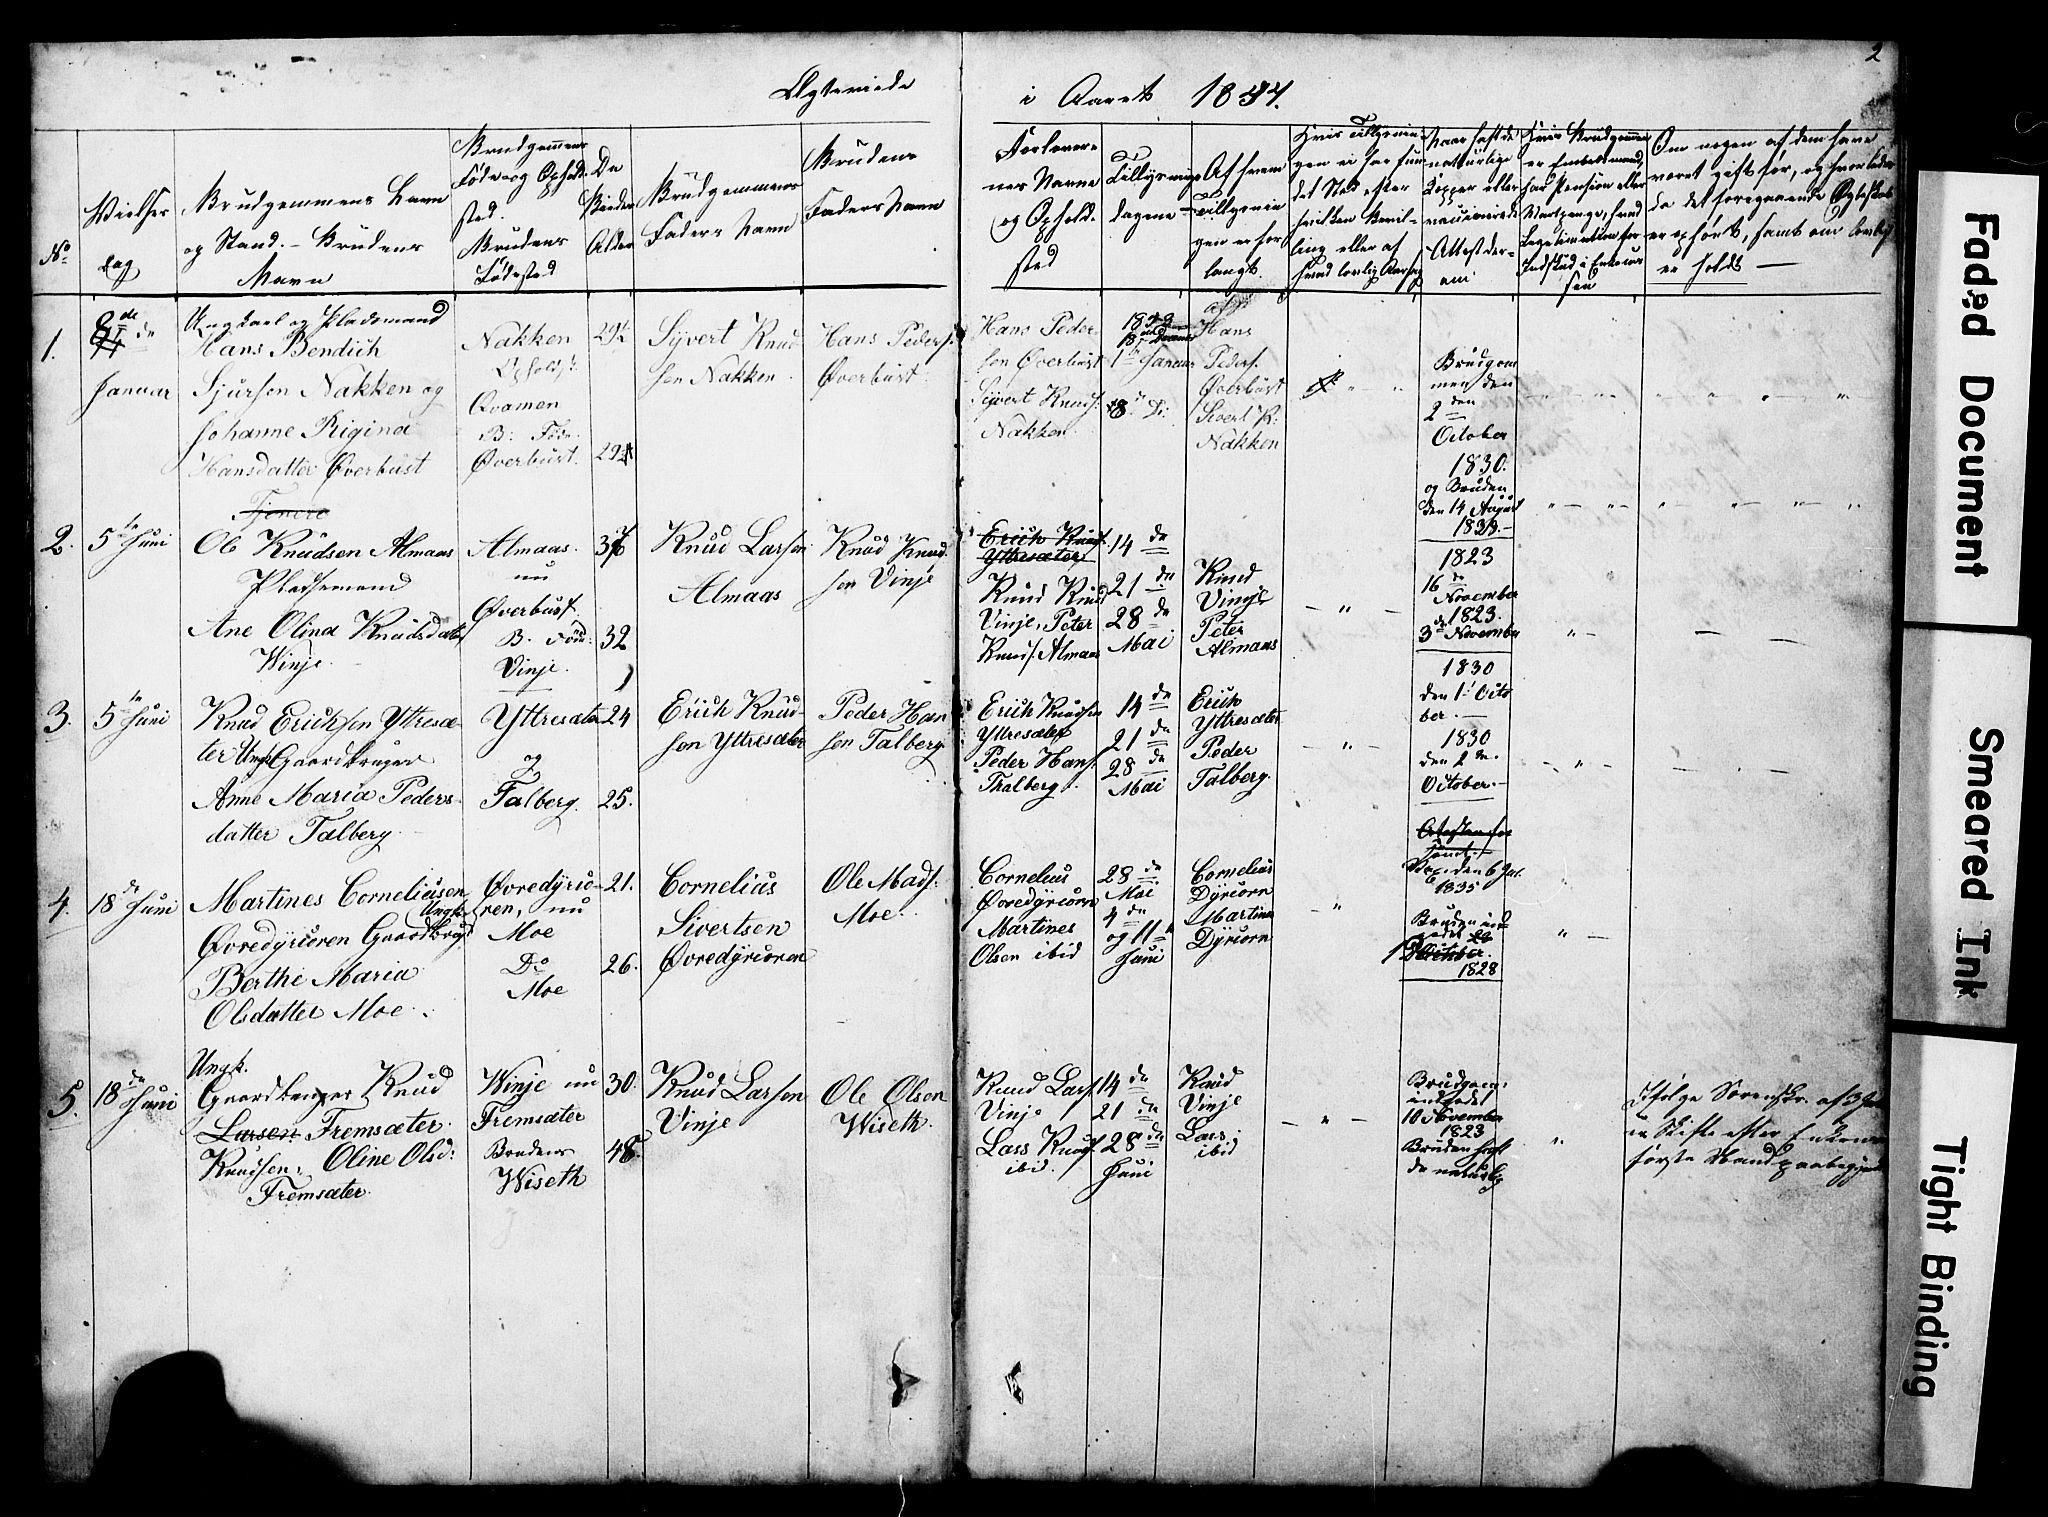 2
Ægteviede i Aaret 1854.
No
Vielses
dag
Brudgommens Navn
og Stand. - Brudens
Navn
Brudgommens
Føde og Opholds
sted.
Brudens
Fødested
De
Viedes
Alder
Brudgommens
Faders Navn
Brudens
Faders Navn
Forlover-
nes Navne
og Opholds
sted
Tillysnings
dagene
Af hvem
Tillysnin
gen er for
langt.
Hvis Tillysnin-
gen ei har fun
det Sted efter
hvilken Bevil-
ling eller af
hvad lovlig Aarsag
Naar havt de
naturlige
Kopper eller
vaccinerede
Attest der-
om
Hvis Brudgommen
er Embedsmand,
har Pension eller
Vartpenge, hvad
Legitimation for
Indskud i Enkecas
sen
Om nogen af dem have
været gift før, og hvorledes
da det foregaaende Ægteskab
er ophørt, samt om lovlig
er holdt —
1.
8de
Januar
Ungkarl og Pladsmand
Hans Bendich
Sjursen Nakken og
Johanne Rigina
Hansdatter Øverbust
Nakken
Opholdst:
Qvamen
B: Føde
Øverbust.
29½
29
Syvert Knud
sen Nakken
Hans Peders.
Øverbust
Hans Peder
sen Øverbust
Syvert Knuds.
Nakken
1ste Januar
8de Do:
af
Hans
Peders.
Øverbust
Sivert K:
Nakken
Brudgom
men den
2den
October
1830.
og Bruden
den 14 August
1833.-
Tjenere
2.
5te Juni
Ole Knudsen Almaas
Pladsemand
Ane Olina Knudsdatter
Winje.
Almaas.
nu
Øverbust
B. Føde:
Vinje.
37
32
Knud Larsen
Almaas
Knud Knud
sen Vinje
Erich Knuds.
Yttresæter
Knud Knud
Vinje, Peter
Knuds. Almaas
14de
21de
28de
Mai
Knud
Vinje
Peter
Almaas
1823
16de
November
1823.
3de November
3.
5te Juni
Knud Erichsen Yttresæ-
ter Ungk Gaardbruger
Anne Maria Peders-
datter Talberg.
Yttresæter
og
Talberg.
24
25.
Erich Knud-
sen Yttresæter
Peder Han
sen Talberg
Erich Knudsen
Yttresæter
Peder Hans.
Thalberg.
14de
21de
28de
Mai
Erich
Yttresæter
Peder
Talberg.
1830
den 1ste Octo
ber.
1830
den 2de
October.-
4.
18de Juni
Martines Corneliusen
Ungk.
Øvredyrioren Gaardbrug
Berthe Maria
Olsdatter Moe.
Øvredyrio-
ren, nu
Moe
Do
Moe
21.
26.
Cornelius
Sivertsen
Øvredyrioren
Ole Mads.
Moe.
Cornelius
Øvredyriorn
Martines
Olsen ibid
28de
Mai
4de
og 11te
Juni
Cornelius
Dyriorn
Martines
Dyriorn
1835
October.
1828
5.
18de Juni
Ungk.
Gaardbruger Knud
Larsen Fremsæter
Knudsen, Oline Olsd:
Fremsæter.
Winje nu
Fremsæter
Brudens
Wiseth
30.
48
Knud Larsen
Vinje
Ole Olsen
Wiseth.
Knud Lars.
Vinje
Lass Knuds.
ibid.
14de
21de
28de
Juni
Knud
Vinje
Lass
ibid
Brudgom:
10 November
1823
Bruden havt
de naturlig
Ifølge Sorenskr. af
er Skifte efter Enkens
første Mand paabegyndt
Faded Document
Smeared Ink
Tight Binding